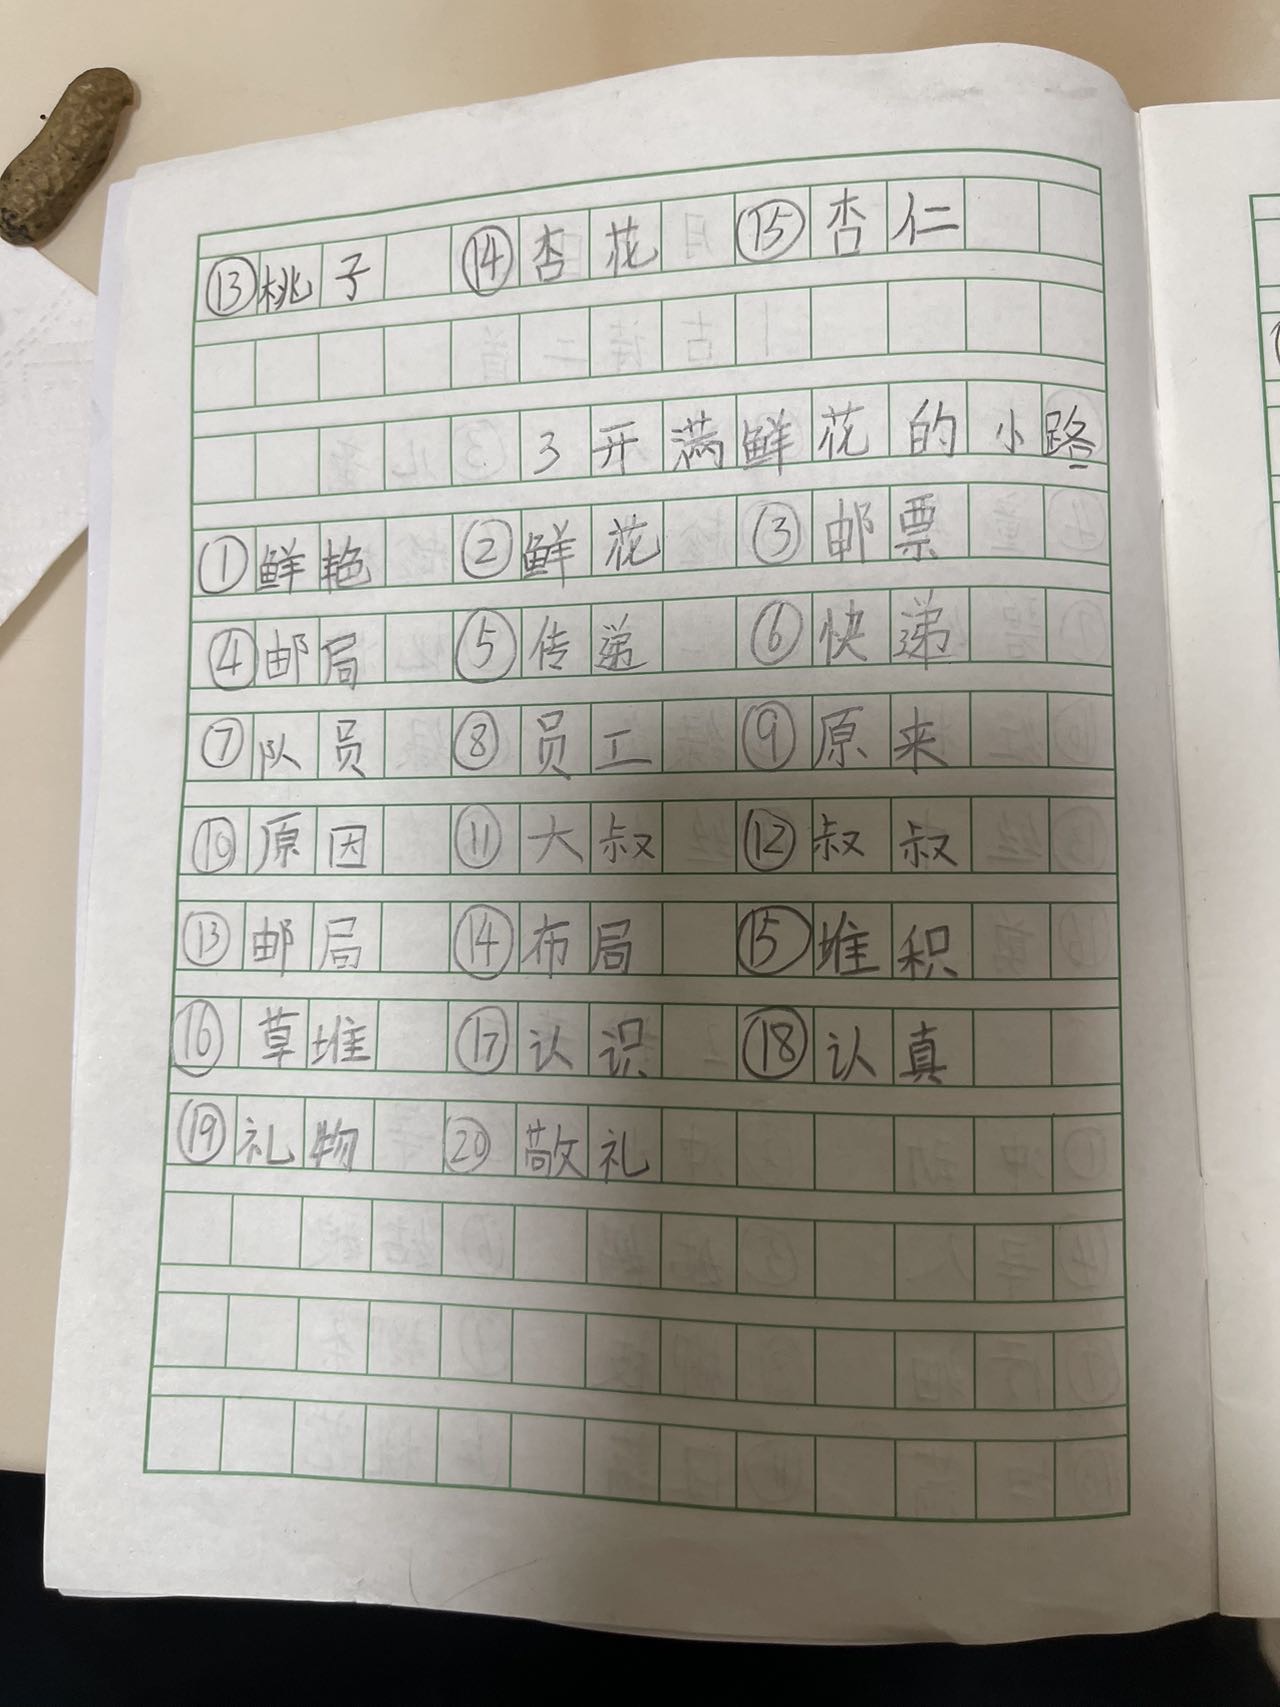 ⑬桃子 ⑭杏花 ⑮杏仁
3开满鲜花的小路
①鲜艳 ②鲜花 ③邮票
④邮局 ⑤传递 ⑥快递
⑦队员 ⑧员工 ⑨原来
⑩原因 ⑪大叔 ⑫叔叔
⑬邮局 ⑭布局 ⑮堆积
⑯草堆 ⑰认识 ⑱认真
⑲礼物 ⑳敬礼